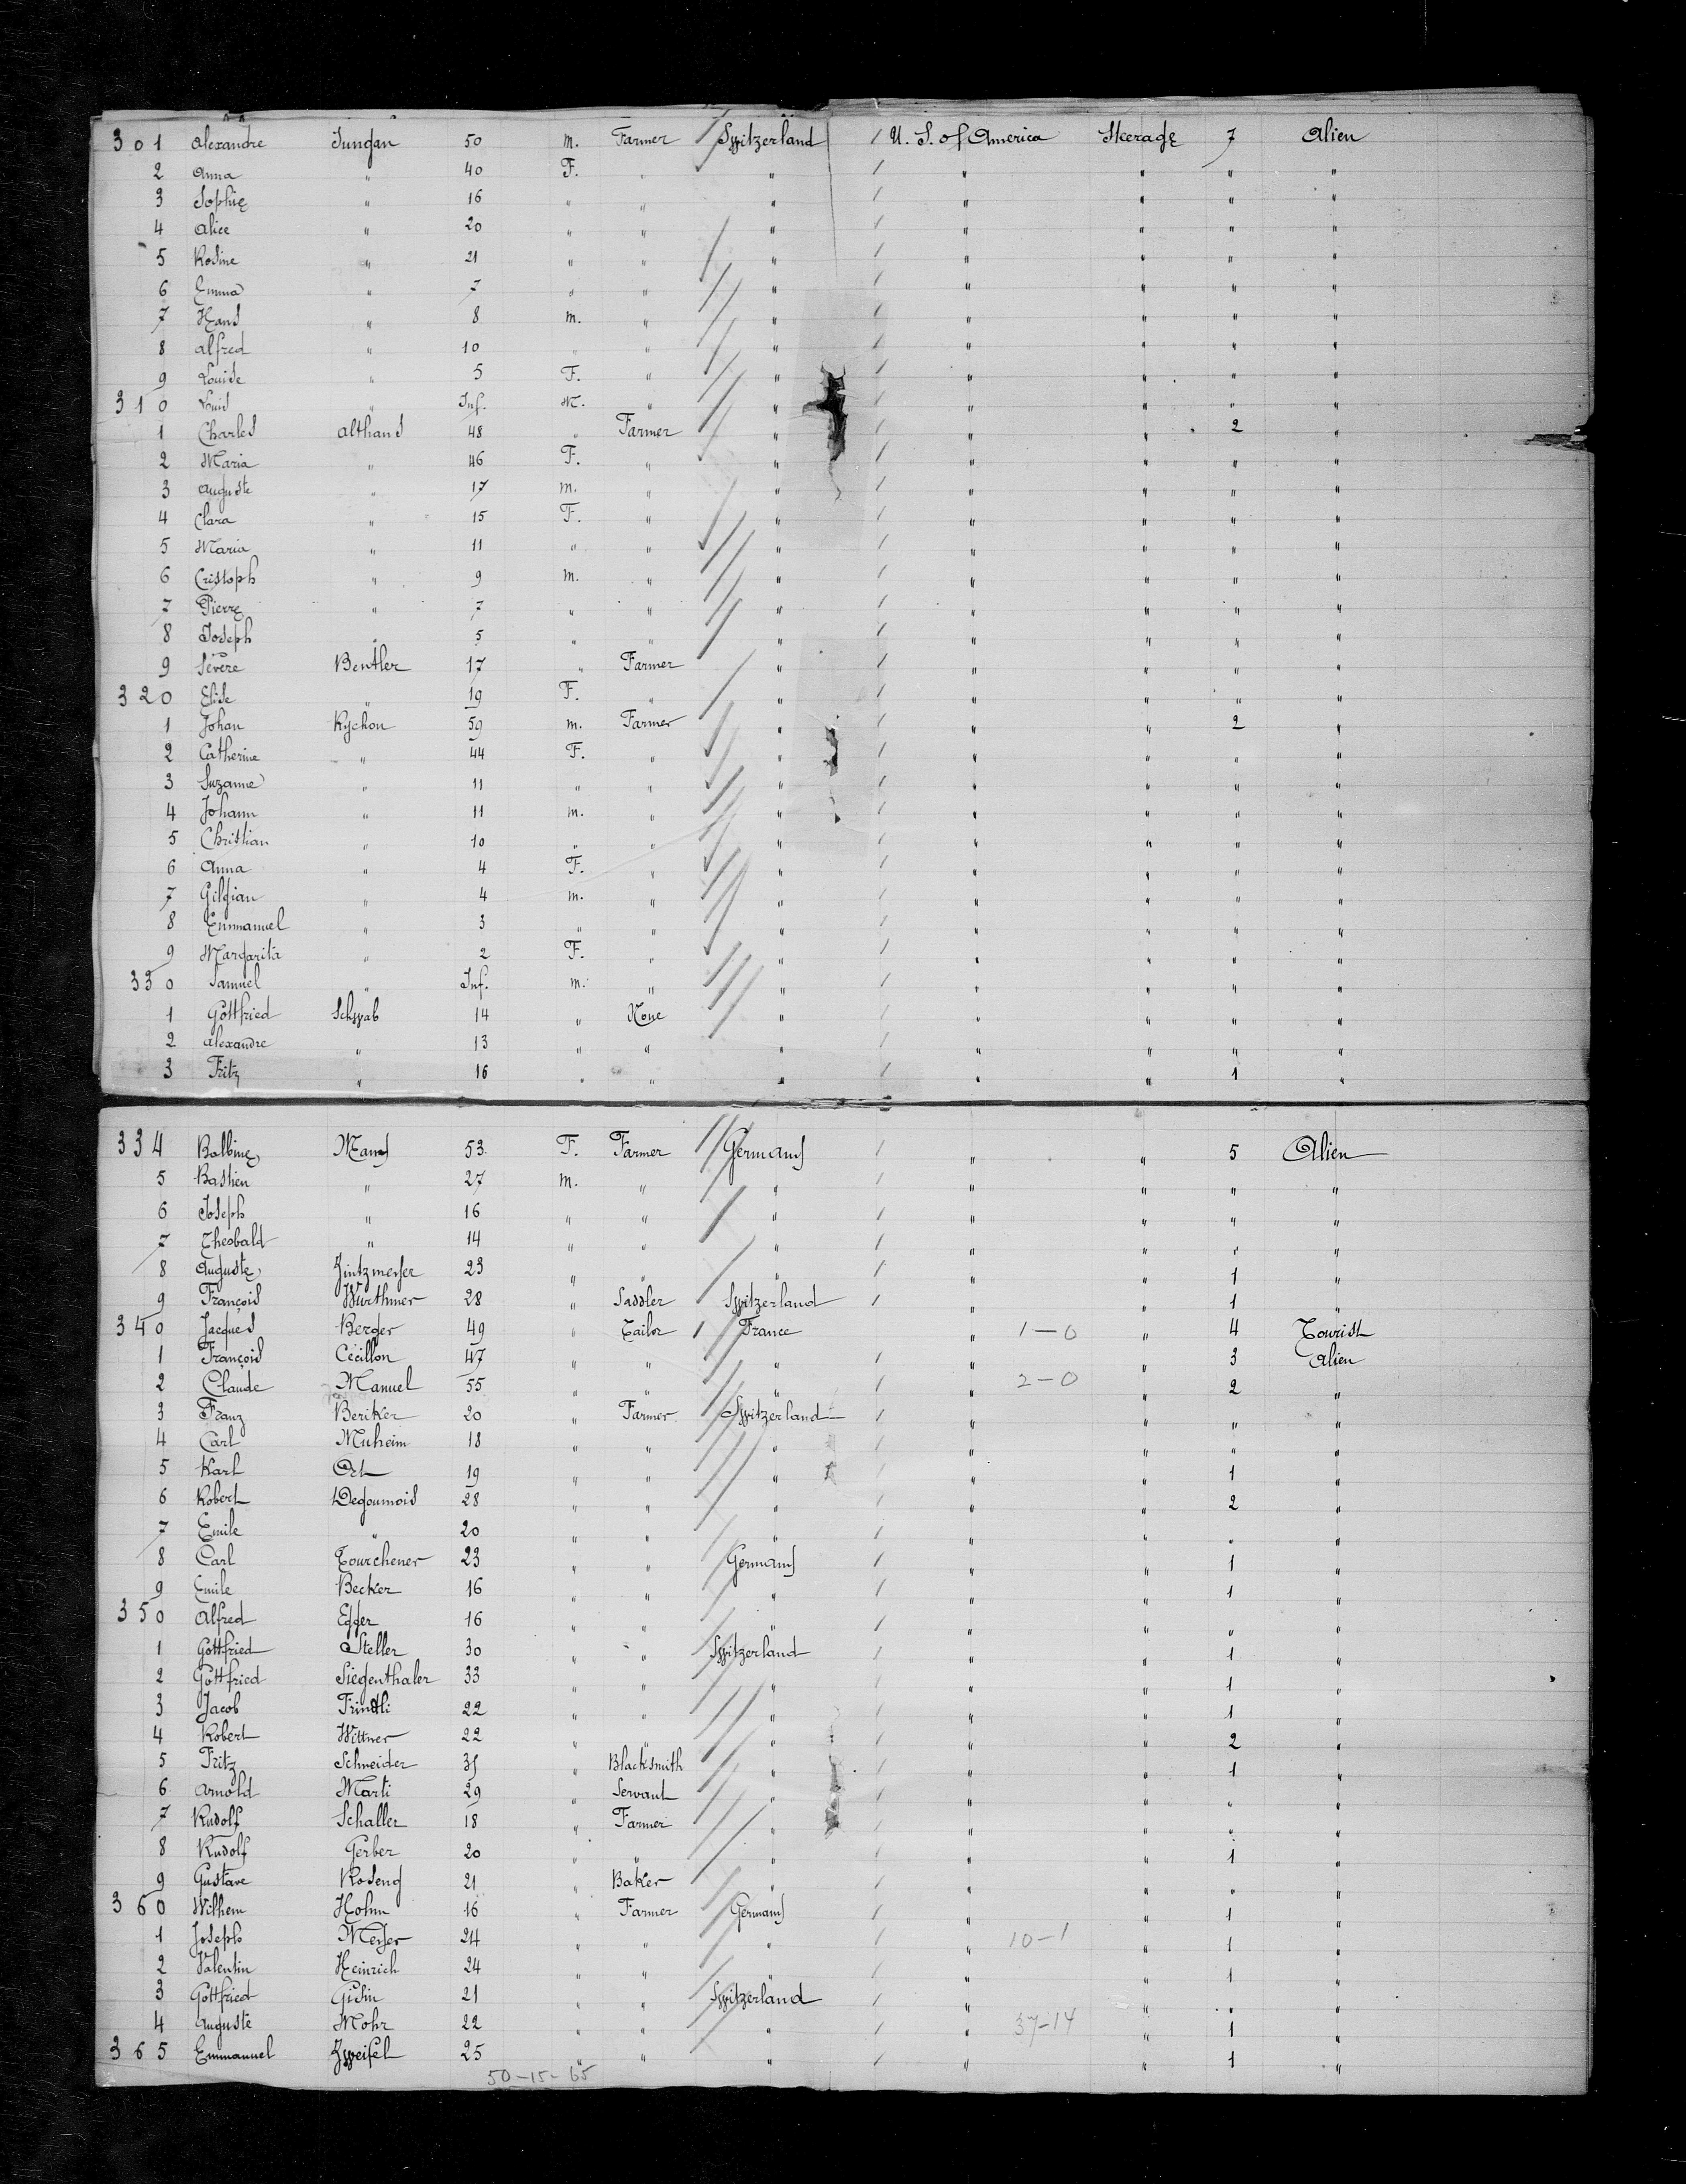 301 Alexandre Jungan 50 m. Farmer Switzerland / U. S. of America Steerage 7 Alien
2 Anna " 40 F. " " / " " " "
3 Sophie " 16 " " " / " " " "
4 Alice " 20 " " " / " " " "
5 Rosine " 21 " " " / " " " "
6 Emma " 7 " " " / " " " "
7 Hans " 8 m. " " / " " " "
8 Alfred " 10 " " " / " " " "
9 Louise " 5 F. " " / " " " "
310 Louis " Inf. M. " " / " " " "
1 Charles Althaus 48 " Farmer " / " " 2 "
2 Maria " 46 F. " " / " " " "
3 Auguste " 17 m. " " / " " " "
4 Clara " 15 F. " " / " " " "
5 Maria " 11 " " " / " " " "
6 Cristoph " 9 m. " " / " " " "
7 Pierre " 7 " " " / " " " "
8 Joseph " 5 " " " / " " " "
9 Sévère Bentler 17 " Farmer " / " " " "
320 Elise " 19 F. " " / " " " "
1 Johan Rychon 59 m. Farmer " / " " 2 "
2 Catherine " 44 F. " " / " " " "
3 Suzanne " 11 " " " / " " " "
4 Johann " 11 m. " " / " " " "
5 Christian " 10 " " " / " " " "
6 Anna " 4 F. " " / " " " "
7 Gilgian " 4 m. " " / " " " "
8 Emmanuel " 3 " " " / " " " "
9 Margarita " 2 F. " " / " " " "
330 Samuel " Inf. m. " " / " " " "
1 Gottfried Schwab 14 " None " / " " " "
2 Alexandre " 13 " " " / " " " "
3 Fritz " 16 " " " / " " 1 "
334 Balbine Many 53 F. Farmer Germany / " " 5 Alien
5 Bastien " 27 m. " " / " " " "
6 Joseph " 16 " " " / " " " "
7 Theobald " 14 " " " / " " " "
8 Auguste Zintzmeyer 23 " " " / " " 1 "
9 François Würthner 28 " Saddler Switzerland / " " 1 "
340 Jacques Berger 49 " Tailor / France " 1-0 " 4 Tourist
1 François Cécillon 47 " " " / " " 3 Alien
2 Claude Manuel 55 " " " / " 2-0 " 2 "
3 Franz Beriker 20 " Farmer Switzerland / " " " "
4 Carl Muheim 18 " " " / " " " "
5 Karl Ort 19 " " " / " " 1 "
6 Robert Degoumois 28 " " " / " " 2 "
7 Emile " 20 " " " / " " " "
8 Carl Tourchener 23 " " Germany / " " 1 "
9 Emile Becker 16 " " " / " " 1 "
350 Alfred Egger 16 " " " / " " " "
1 Gottfried Steller 30 " " Switzerland / " " 1 "
2 Gottfried Siegenthaler 33 " " " / " " 1 "
3 Jacob 22 " " " / " " 1 "
4 Robert Wittner 22 " " " / " " 2 "
5 Fritz Schneider " Blacksmith " / " " 1 "
6 Arnold Marti 29 " Servant " / " " " "
7 Rudolf Schaller 18 " Farmer " / " " " "
8 Rudolf Gerber 20 " " " / " " 1 "
9 Gustave Roseng 21 " Baker " / " " " "
360 Wilhem Hohm 16 " Farmer Germany / " " 1 "
1 Joseph Meyer 24 " " " / " 10-1 " 1 "
2 Valentin Heinrich 24 " " " / " " 1 "
3 Gottfried Gisin 21 " " Switzerland / " " " "
4 Auguste Mohr 22 " " " / " 37-14 " 1 "
365 Emmanuel Zweifel 25 " " " / " " 1 "
50-15-65